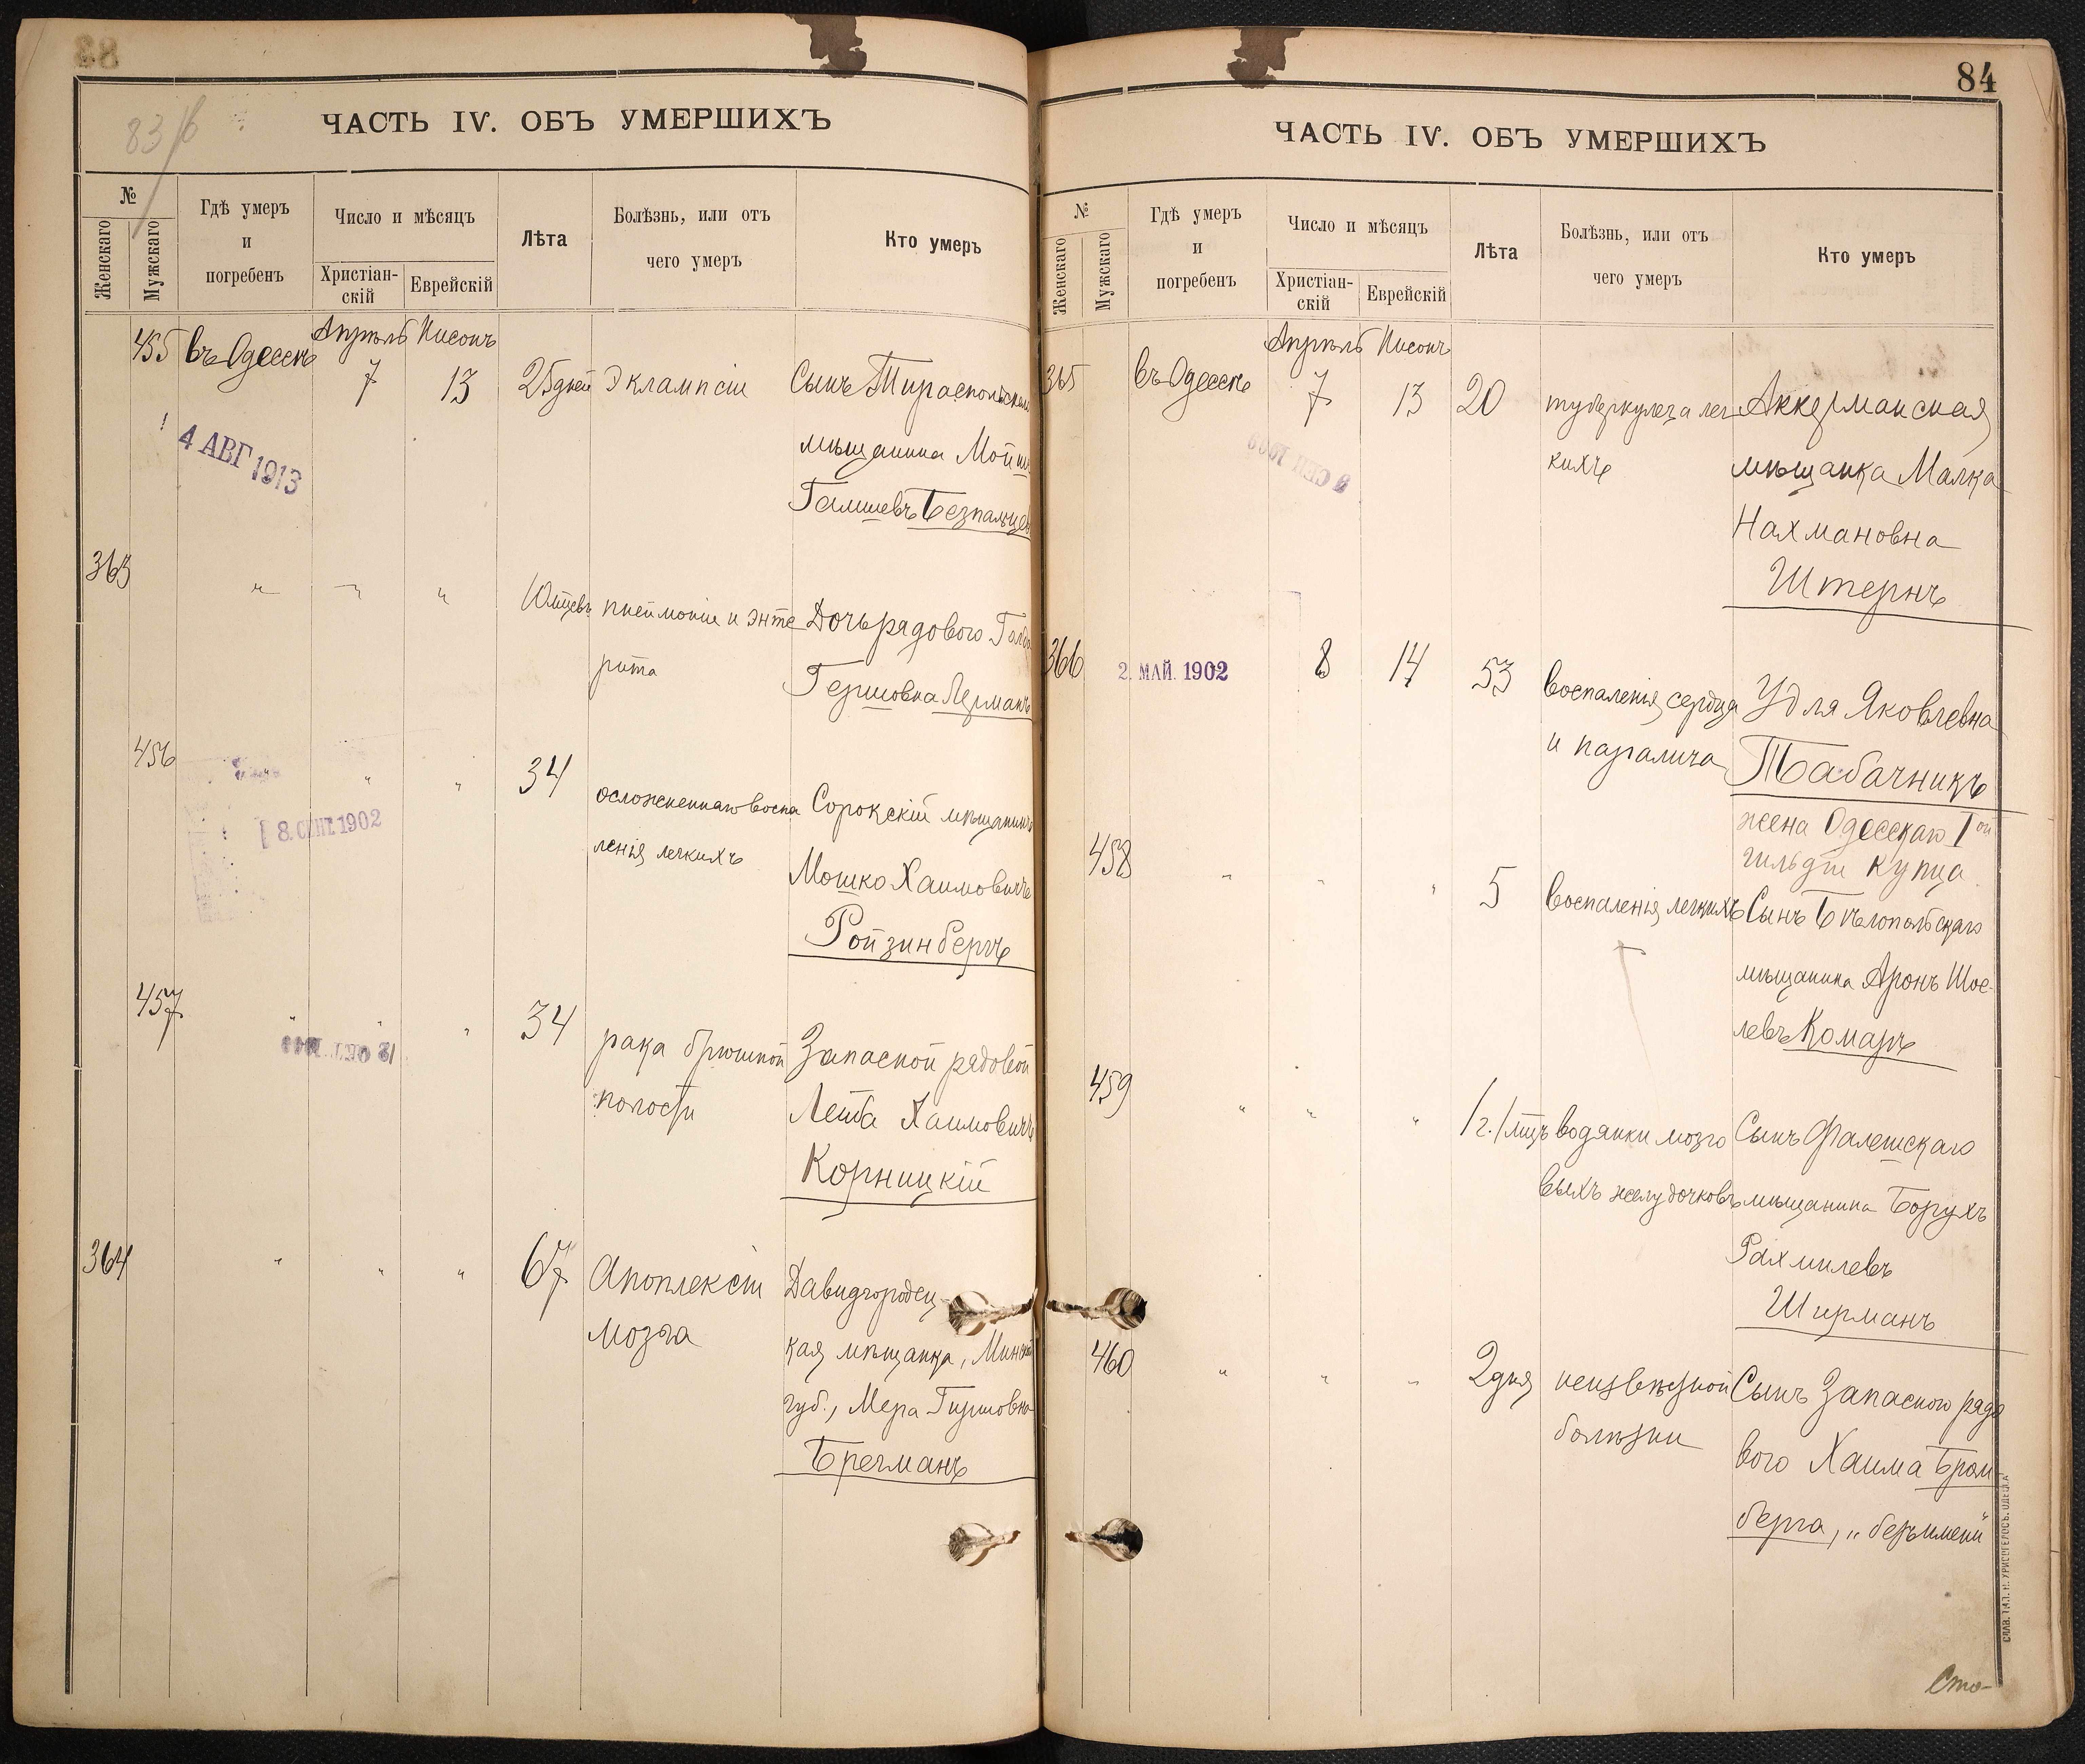 83 об
ЧАСТЬ IV. ОБЪ УМЕРШИХЪ
№
Женскаго
Мужскаго
Гдѣ умеръ
и
погребенъ
Число и мѣсяцъ
Христіан-
скій
Еврейскій
Лѣта
Болѣзнь, или отъ
чего умеръ
Кто умеръ
455 въ Одессѣ Апрѣль Нисонъ
7 13 25 дней Эклампсіи Сынъ Тираспольскаго
мѣщанина
4 АВГ 1913
Безпальцев
363 пнеймоніи и энте Дочь рядового
рита Гершовна Лерманъ
456 34 осложненнаго воспа Сорокскій мѣщанинъ
ленія легкихъ
8. СЕНТ 1902
Мошко Хаимовичъ
Ройзинбергъ
457 34 рака брюшной Запасной рядовой
полости Лейба Хаимовичъ
Корницкій
364 67 Апоплексіи Давидгородец-
мозга кая мѣщанка, Минской
губ., Мера Гиршовна
Брегманъ
84
ЧАСТЬ IV. ОБЪ УМЕРШИХЪ
№
Женскаго
Мужскаго
Гдѣ умеръ
и
погребенъ
Число и мѣсяцъ
Христіан-
скій
Еврейскій
Лѣта
Болѣзнь, или отъ
чего умеръ
Кто умеръ
365 въ Одессѣ Апрѣль Нисонъ
7 13 20 туберкулеза лег Аккерманская
кихъ мѣщанка Малка
Нахмановна
Штернъ
366 2. МАЙ. 1902 8 14 53 воспаленія сердца Удля Яковлевна
и паралича Табачникъ
жена Одесскаго I ой
гильдіи купца
458 " " " 5 воспаленія легкихъ Сынъ Бѣлопольскаго
мѣщанина Аронъ Шое-
левъ Комаръ
459 " " " 1 г. 1 мцъ водянки мозго Сынъ Фалешскаго
выхъ желудочковъ мѣщанина Борухъ
Рахмилевъ
Ширманъ
460 " " " 2 дня неизвѣстной Сынъ Запасного рядо
болѣзни вого Хаима Бром-
берга, "безъ имени"
Сто-